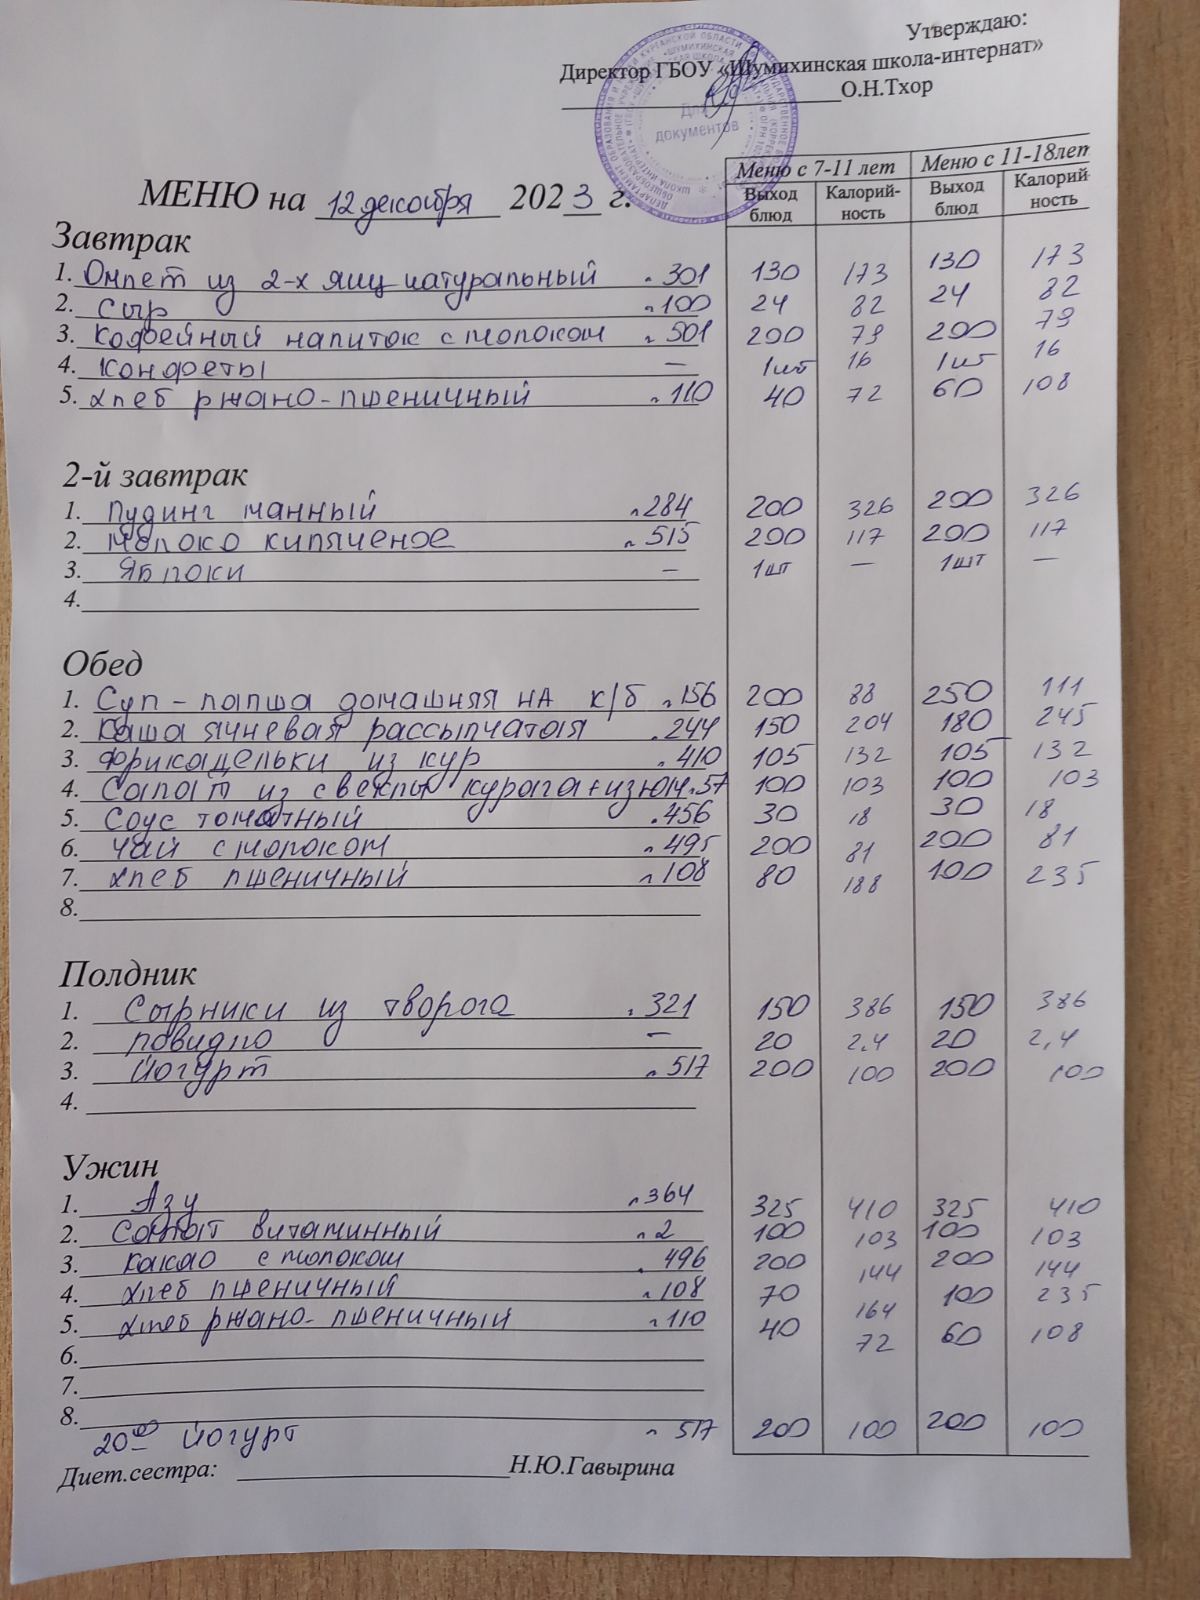 Утверждаю:
Директор ГБОУ «Шумихинская школа-интернат»
О.Н.Тхор
Для документов
МЕНЮ на 12 декабря 2023 г.
Меню с 7-11 лет Меню с 11-18лет
Выход блюд Калорий-ность Выход блюд Калорий ность
Завтрак
1. Омлет из 2-х яиц натуральный 301 130 173 130 173
2. Сыр 100 24 82 24 82
3. Кофейный напиток с молоком 501 200 79 200 79
4. Конфеты — 1шт 16 1шт 16
5. Хлеб ржано-пшеничный 110 40 72 60 108
2-й завтрак
1. Пудинг манный 284 200 326 200 326
2. Молоко кипяченое 515 200 117 200 117
3. Яблоки — 1шт — 1шт —
4.
Обед
1. Суп-лапша домашняя на к/б 156 200 88 250 111
2. Каша ячневая рассыпчатая 244 150 204 180 245
3. Фрикадельки из кур 410 105 132 105 132
4. Салат из свеклы курага+изюм 57 100 103 100 103
5. Соус томатный 456 30 18 30 18
6. Чай с молоком 495 200 81 200 81
7. Хлеб пшеничный 108 80 188 100 235
8.
Полдник
1. Сырники из творога 321 150 386 150 386
2. повидло — 20 2.4 20 2,4
3. йогурт 517 200 100 200 100
4.
Ужин
1. Азу 364 325 410 325 410
2. Салат витаминный 2 100 103 100 103
3. Какао с молоком 496 200 144 200 144
4. Хлеб пшеничный 108 70 164 100 235
5. Хлеб ржано-пшеничный 110 40 72 60 108
6.
7.
8.
20 00 йогурт 517 200 100 200 100
Диет.сестра: Н.Ю.Гавырина